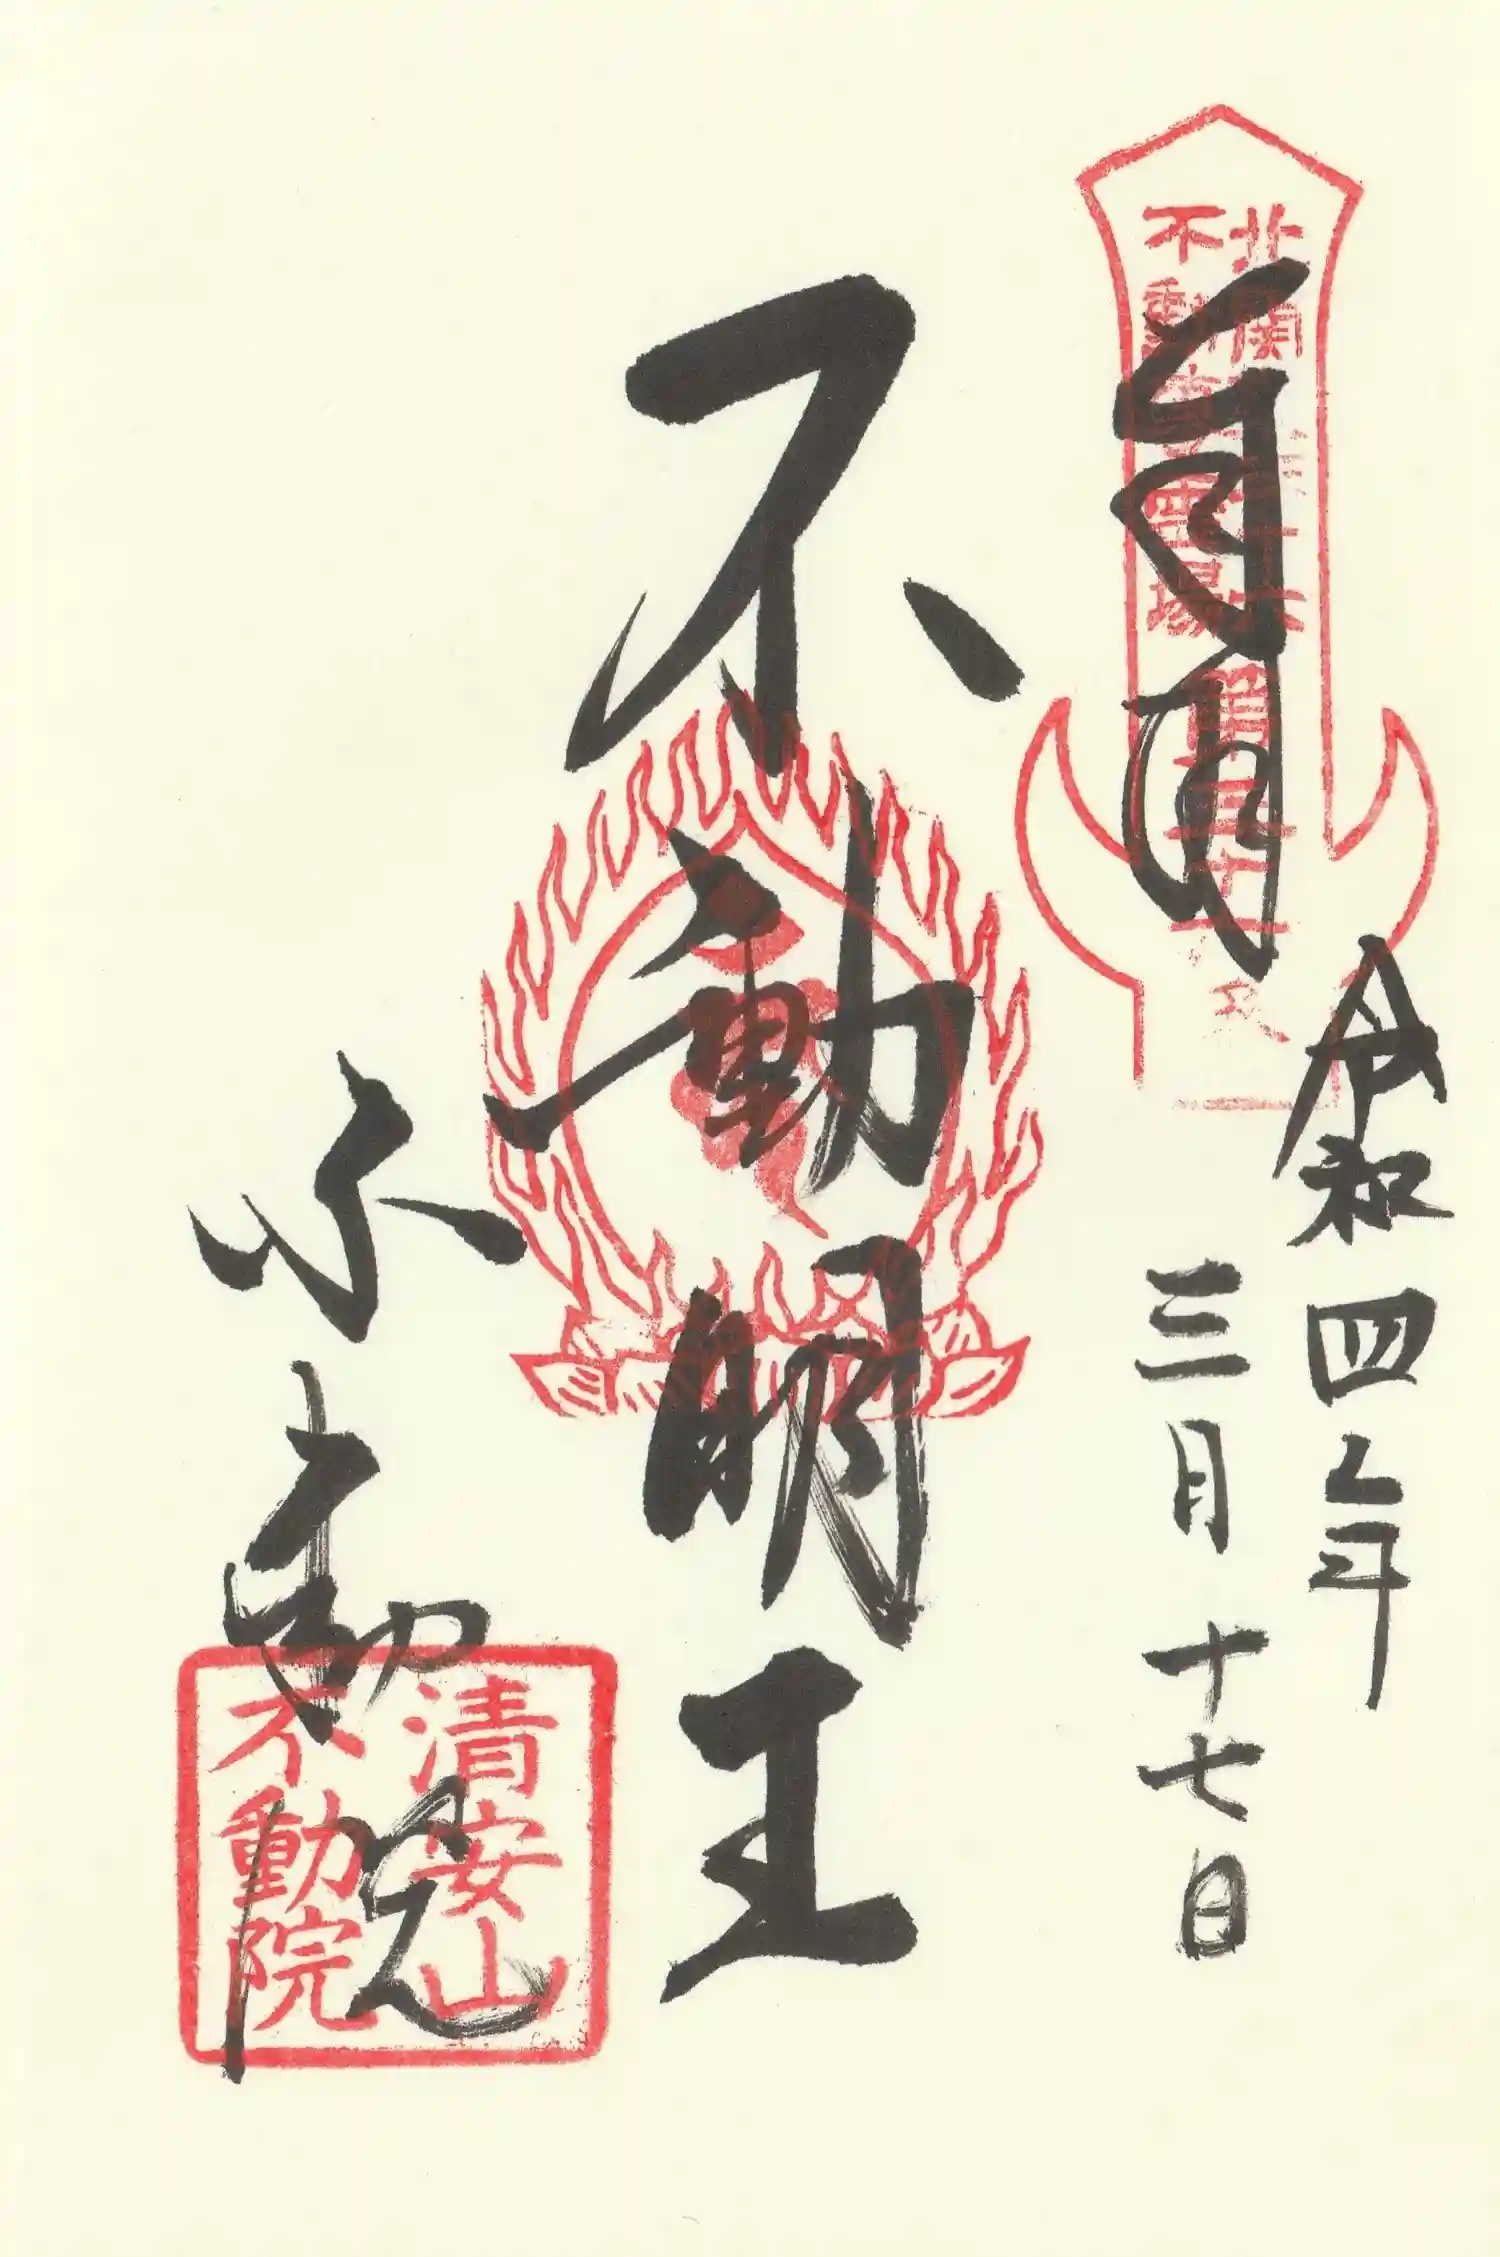 北関東三十六
不動尊霊場
第三十一
令和四年
三月十七日
不動明王
不動院
清安山
不動院